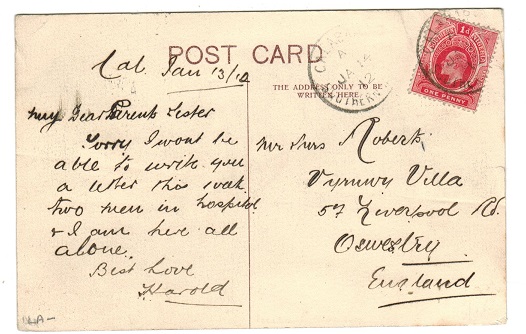 POST CARD
THE ADDRESS ONLY TO BE
WRITTEN HERE.
Cal. Jan 13/12
My Dear Parents & Sister
Sorry I wont be
able to write you
a letter this week
two men in hospital
& I am here all
alone.
Best love
Harold
Mr & Mrs Roberts
Vyrnwy Villa
57 Liverpool Rd.
Oswestry
England
CALABAR
JA 14
12
SOUTHERN
1d
ONE PENNY